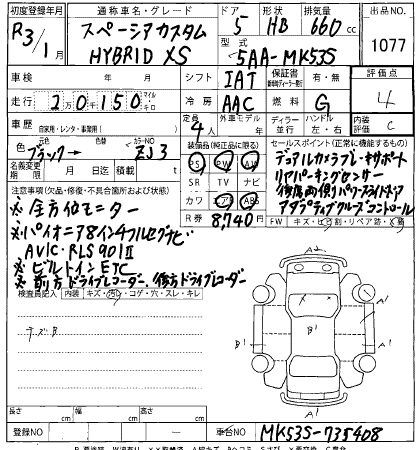 初度登録年月 通称車名・グレード ドア 形状 排気量 出品NO.
R3/1 スペーシアカスタム HYBRID XS 5 HB 660cc 1077
型式 5AA-MK53S
車検 年 月 シフト IAT 保証書 有・無 評価点 4
走行 20150 マイル キロ 冷房 AAC 燃料 G 内装評価 C
車歴 自家用・レンタ・事業用( ) 定員 4人 外車モデル年 ディーラー 並行 ハンドル 左・右
色 ブラック 色替 カラーNO ZJ3
名義変更期限 月 日迄 積載 t
装備品(純正品に限る)
PS PW AW
SR TV ナビ
カワ エアB ABS
R券 8,740円
セールスポイント(正常に機能する)
デュアルカメラブレーキサポート
リアパーキングセンサー
後席両側パワースライドドア
アダプティブクルーズコントロール
FW キズ・ヒビ割・リペア跡・X有
注意事項(欠品・修復・不具合箇所および状態)
※全方位モニター
※パイオニア8インチフルセグナビ
AVIC-RLS901II
※ビルトインETC
※前方ドライブレコーダー、後方ドライブレコーダー
検査員記入 内装 キズ・汚レ・コゲ・穴・スレ・キレ
キズB
A2
B1 B1 A1
A1 A1
長さ cm 幅 cm 高さ cm
登録NO 車台NO MK53S-735408